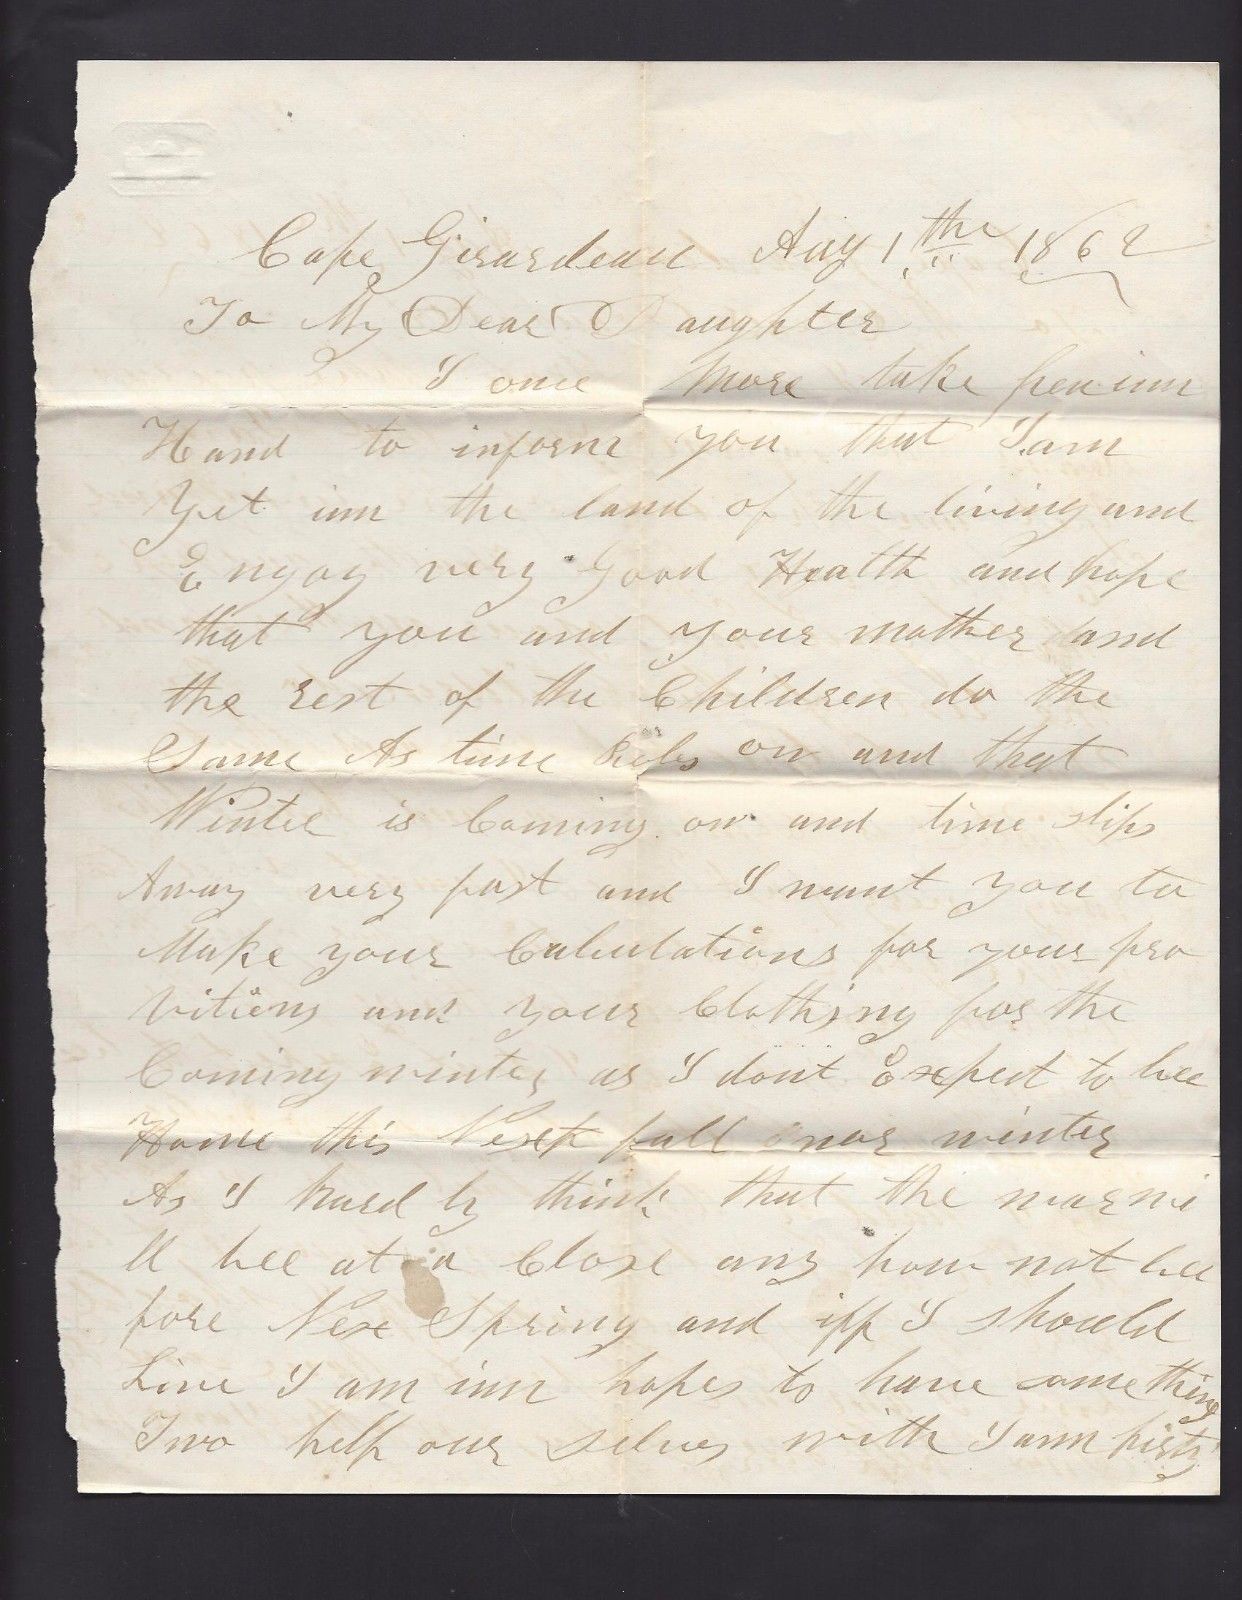 Cape Girardeau Aug 1th 1862
To My Dear Daughter
I once More take pen inn
Hand to inform you that I am
Yet inn the land of the living and
Engoy very Good Health and hope
that you and your mother and
the rest of the Children do the
Same As time on and that
Winter is Coming on and time slips
Away very fast and I want you to
Make your Calculations for your pro
vitions and your Clothing for the
Coming winter as I dont Expect to bee
Home this Next fall nor winter
As I hardly think that the war wi
ll bee at a Close any how not bee
fore Nex Spring and iff I should
Live I am inn hopes to have some thing
Two help our selves with I am